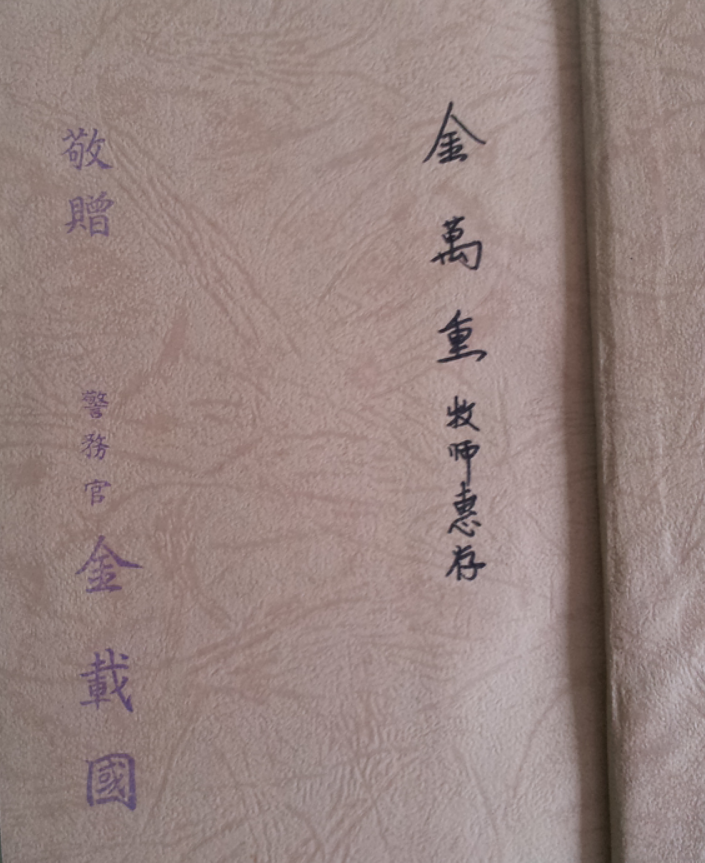 金萬重牧师惠存
敬贈
警務官金載國